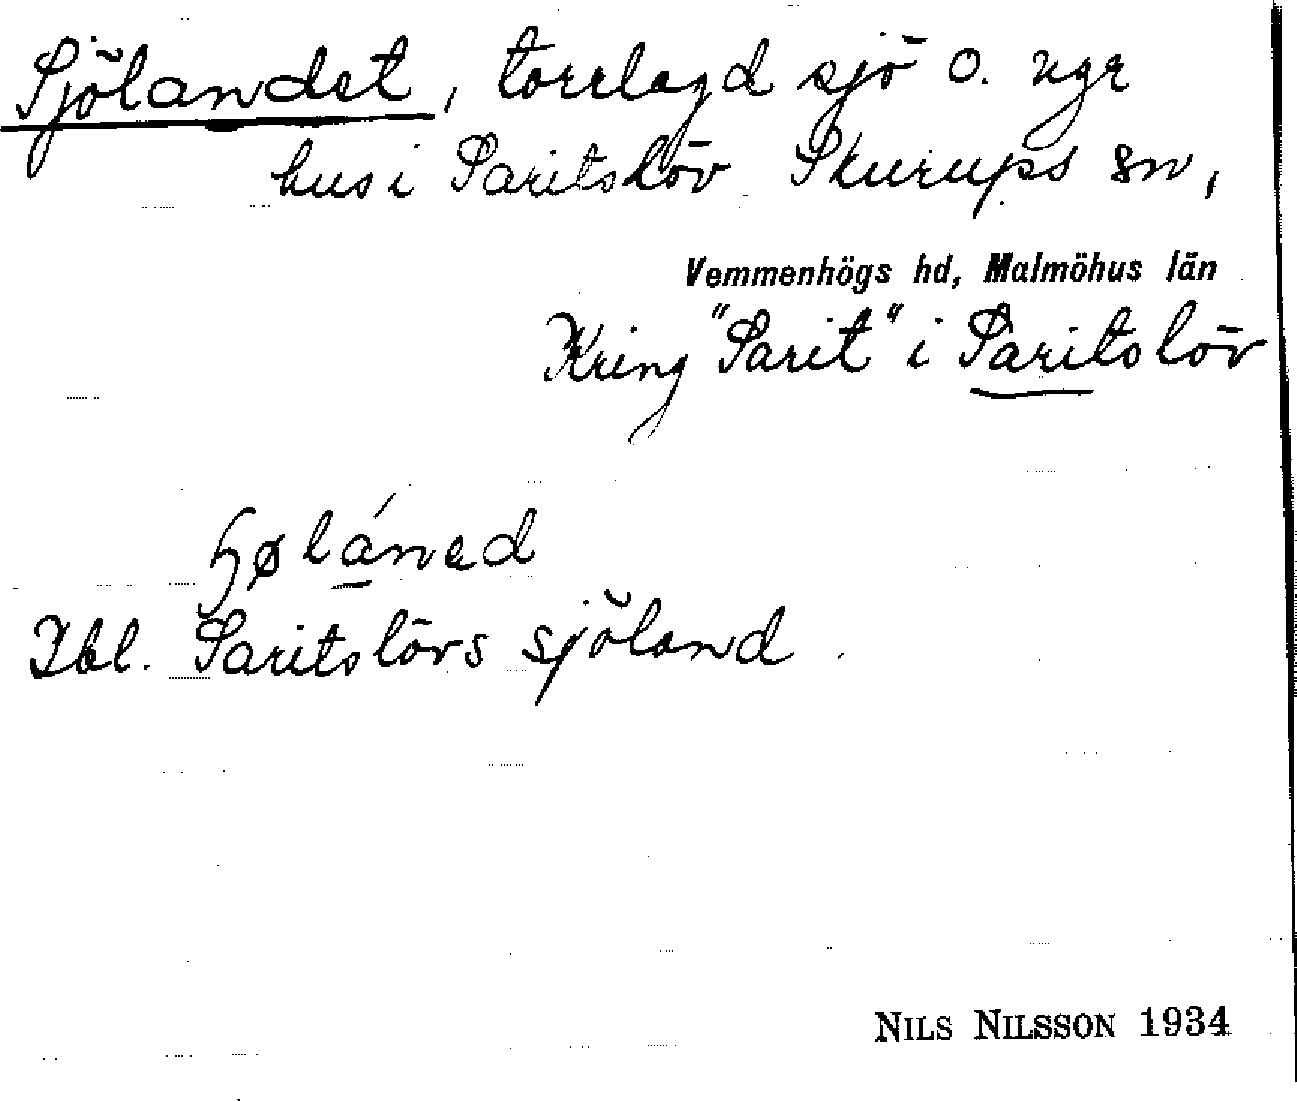 Sjölandet, torrlagd sjö o. ngr
hus i Saritslöv Skurups sn,
Vemmenhögs hd, Malmöhus län
Kring "Sarit" i Saritslöv
ɧøláned
Ibl. Saritslövs sjöland.
NILS NILSSON 1934